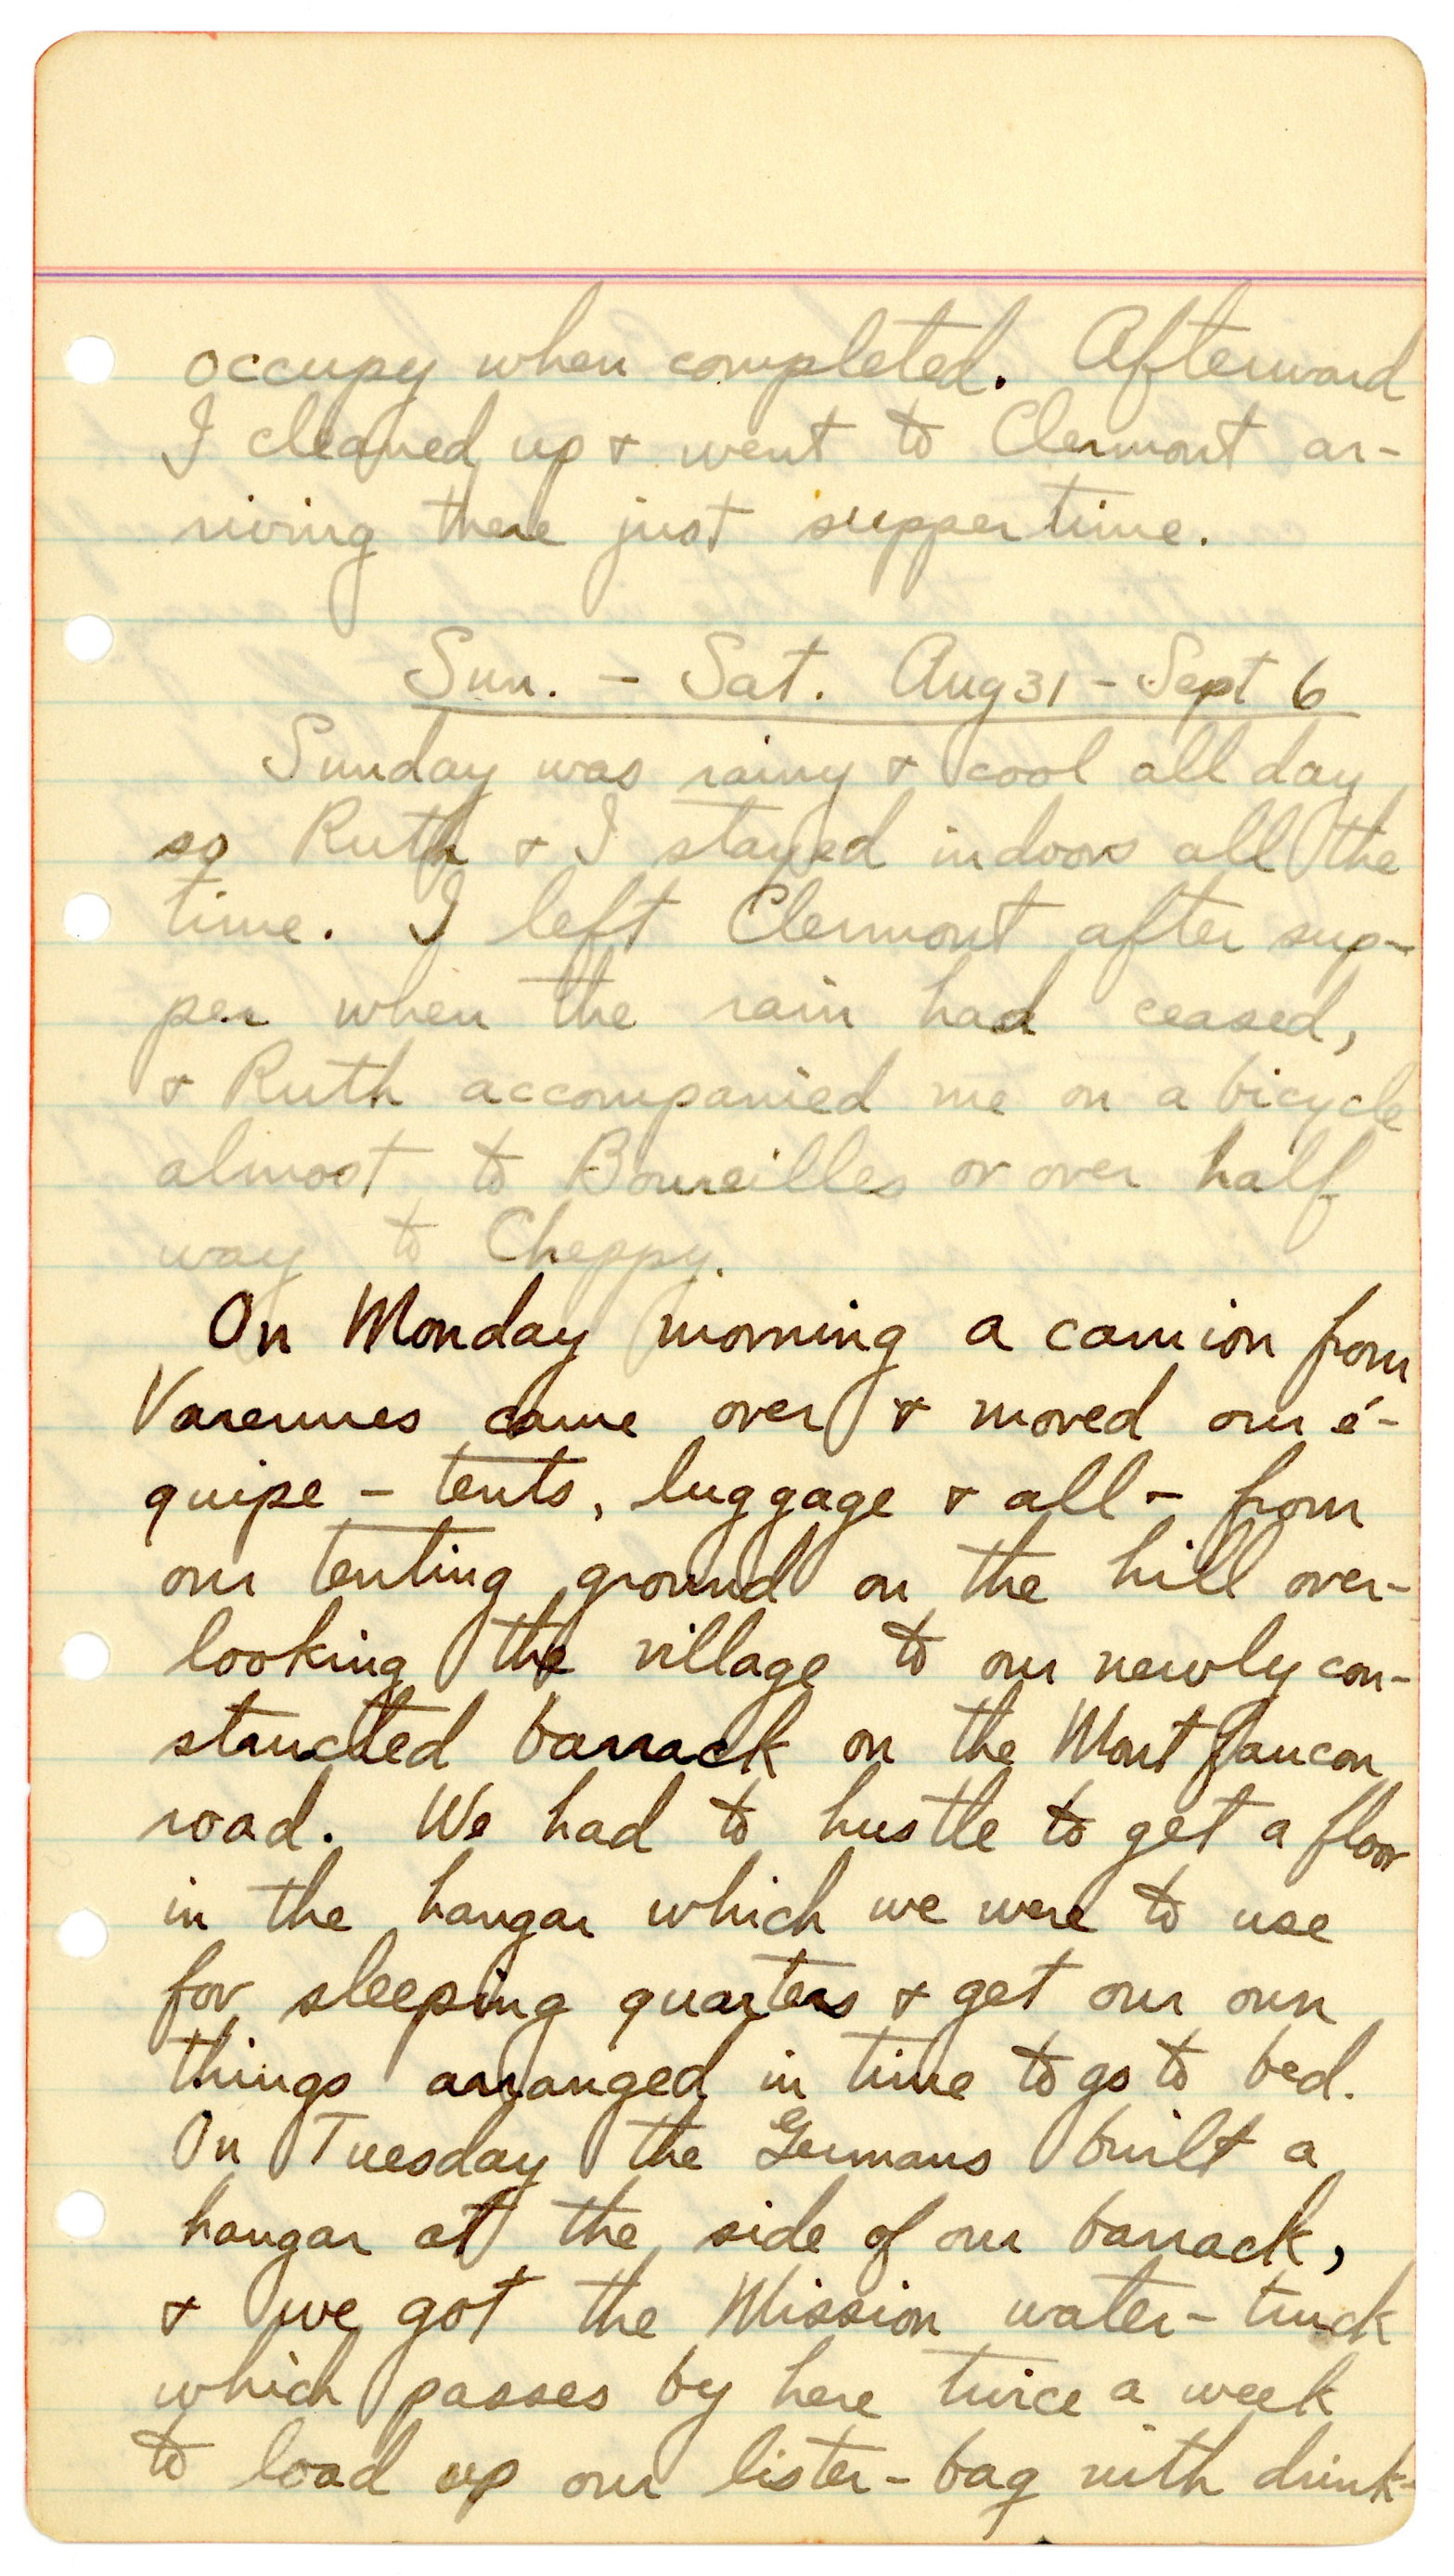 occupy when completed. Afterward
I cleaned up & went to Clermont ar-
riving there just supper time.
Sun. - Sat. Aug 31 - Sept 6
Sunday was rainy & cool all day
so Ruth & I stayed indoors all the
time. I left Clermont after sup-
per when the rain had ceased,
& Ruth accompanied me on a bicycle
almost to Boureilles or over half
way to Cheppy.
On Monday morning a camion from
Varennes came over & moved our é-
quipe - tents, luggage & all - from
our tenting ground on the hill over-
looking the village to our newly con-
structed barrack on the Mont faucon
road. We had to hustle to get a floor
in the hangar which we were to use
for sleeping quarters & get our own
things arranged in time to go to bed.
On Tuesday the Germans built a
hangar at the side of our barrack,
& we got the Mission water-truck
which passes by here twice a week
to load up our lister-bag with drink-